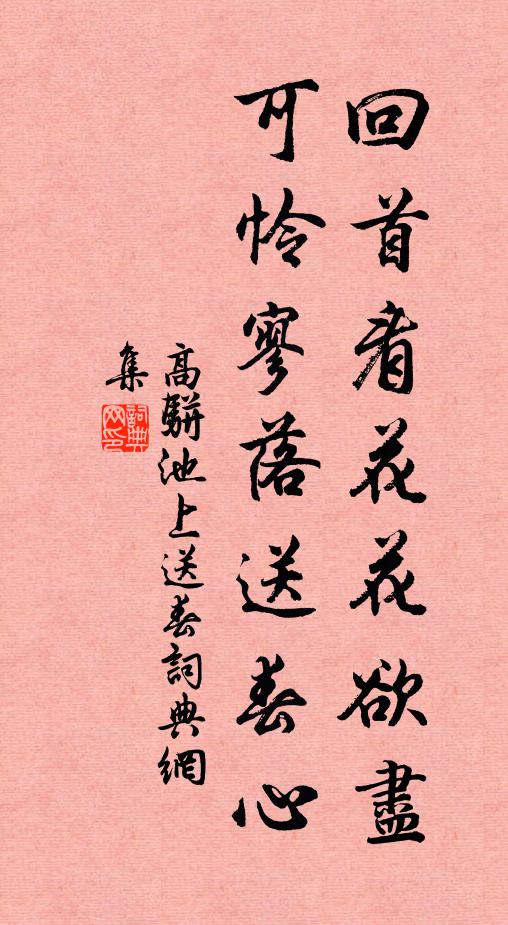 回首看花花欲盡
可憐寥落送春心
高駢池上送春詞典網
集
詞典网印